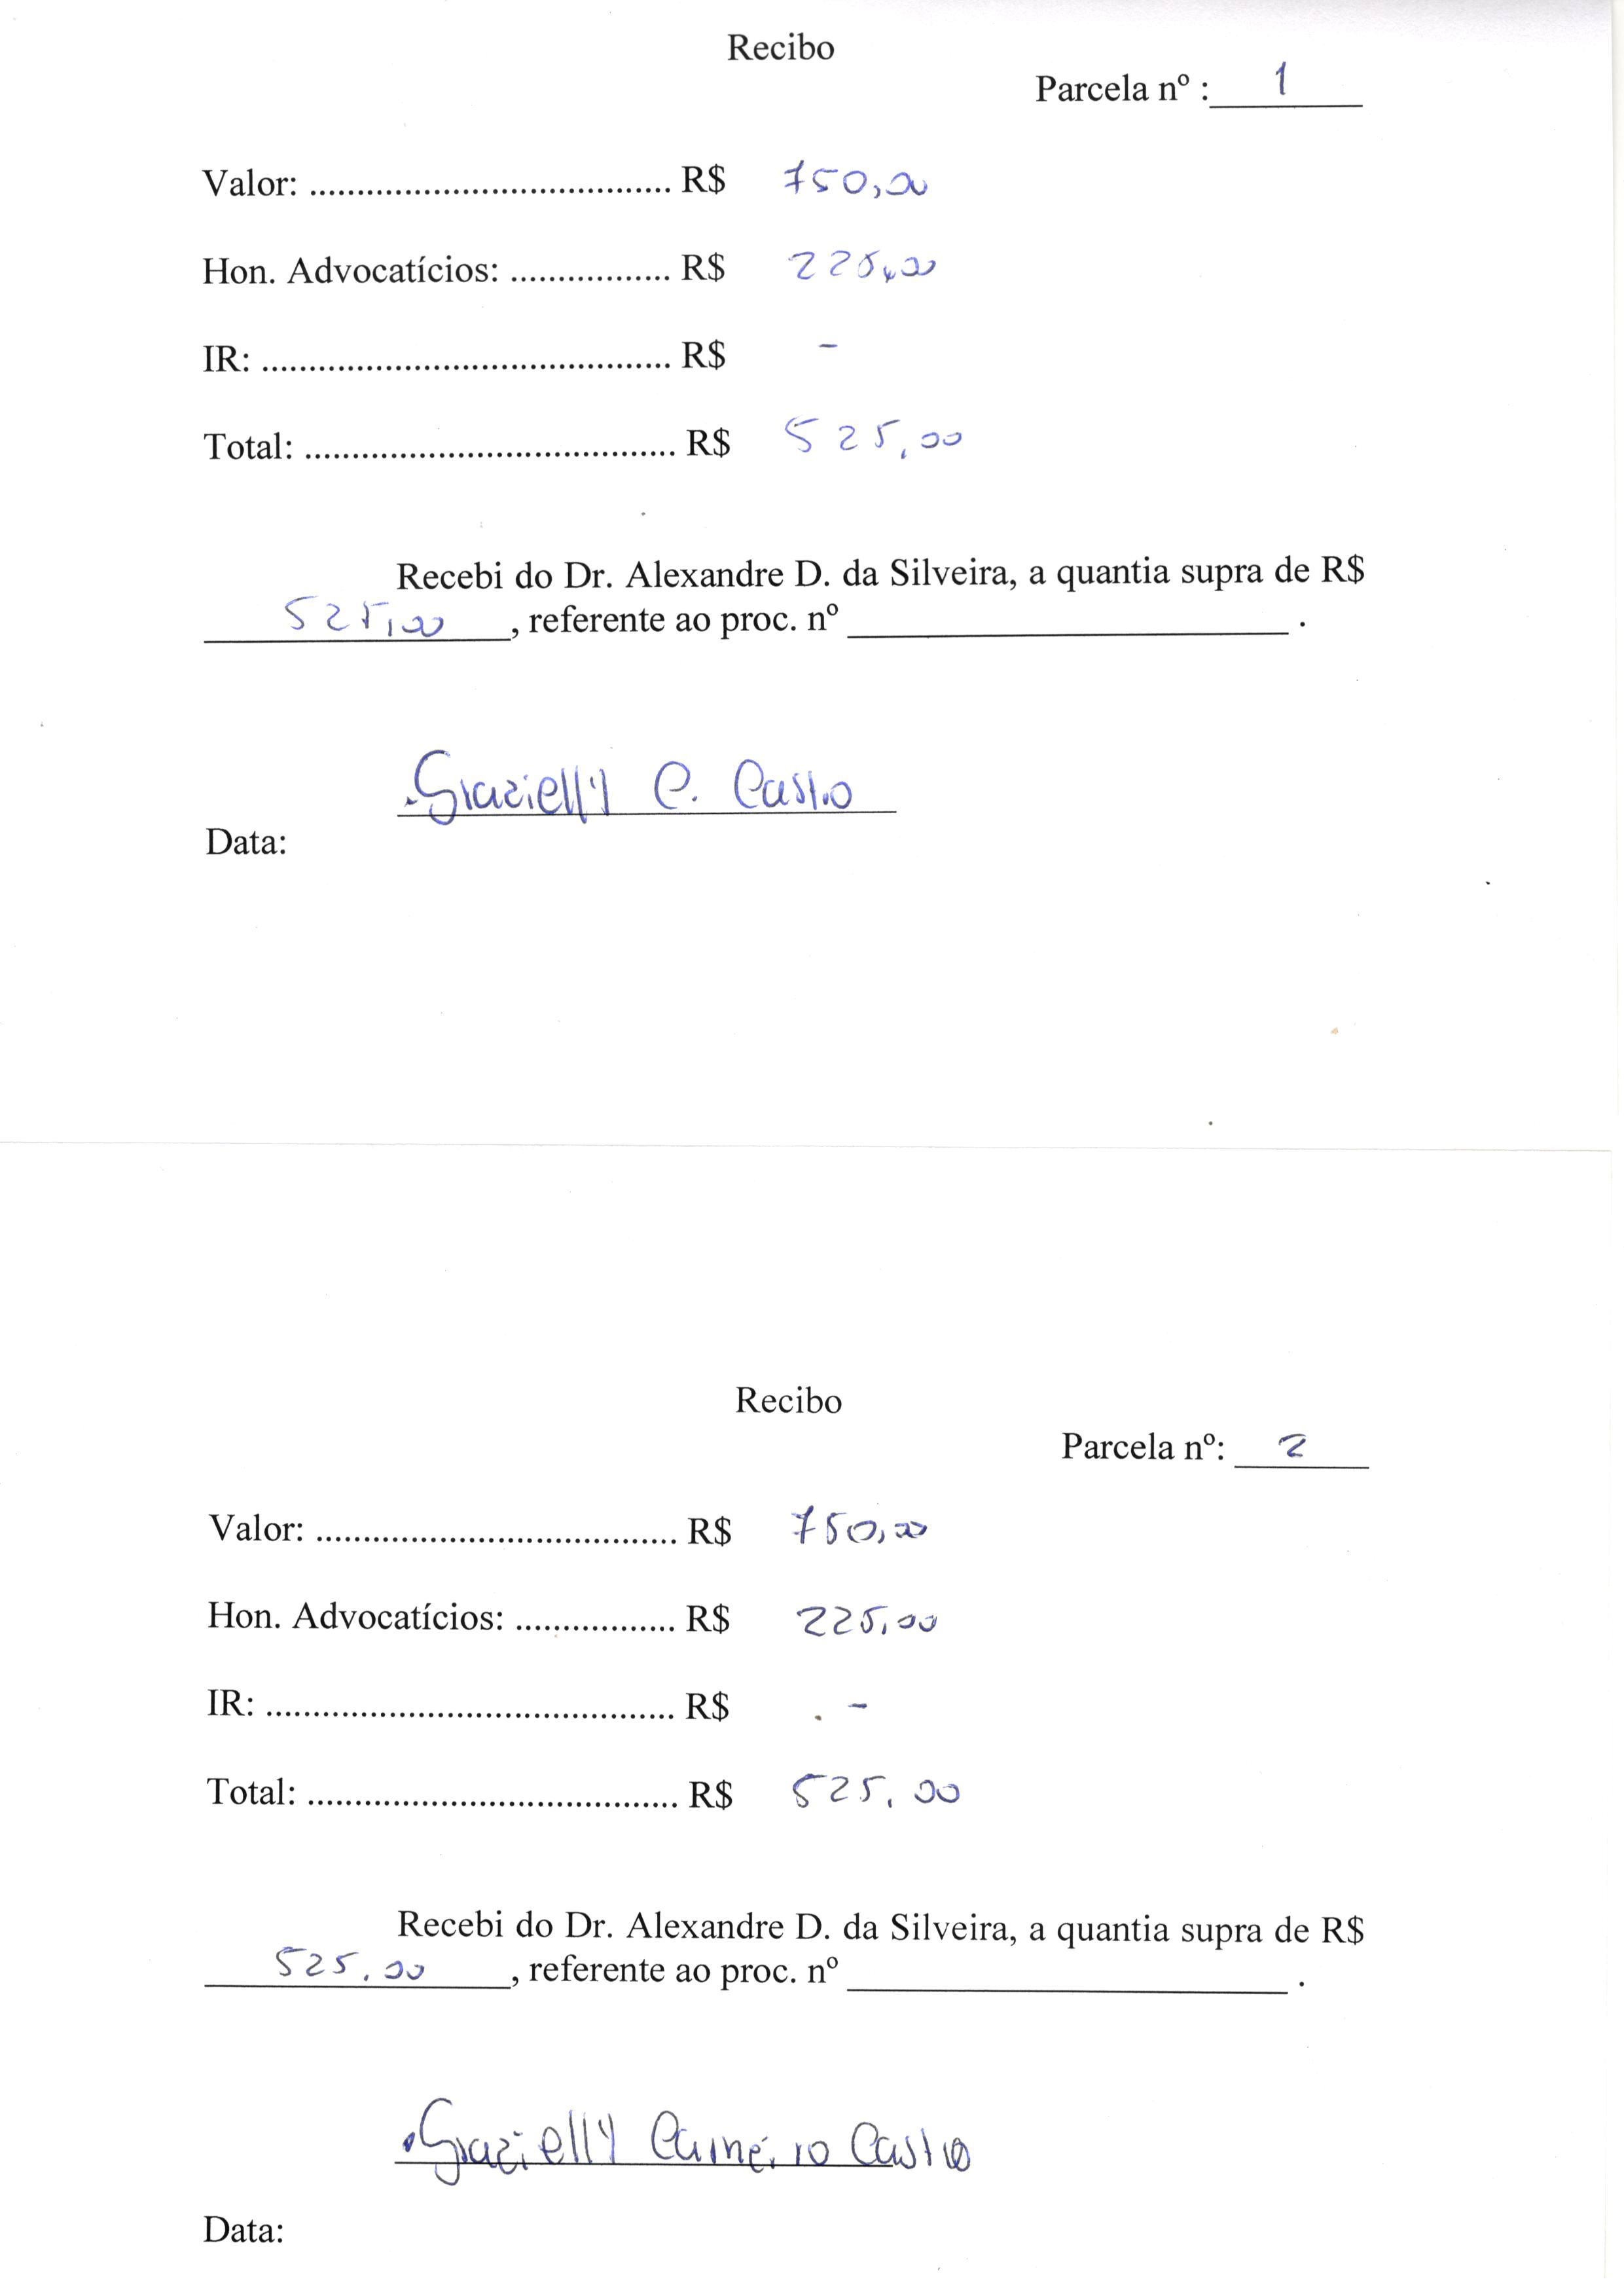 Recibo
Parcela nº : 1
Valor: ...................................... R$ 750,00
Hon. Advocatícios: ................. R$ 225,00
IR: ........................................... R$ -
Total: ....................................... R$ 525,00
Recebi do Dr. Alexandre D. da Silveira, a quantia supra de R$
525,00, referente ao proc. nº ______________________ .
Grazielly C. Castro
Data:
Recibo
Parcela nº: 2
Valor: ...................................... R$ 750,00
Hon. Advocatícios: ................. R$ 225,00
IR: ........................................... R$ -
Total: ....................................... R$ 525,00
Recebi do Dr. Alexandre D. da Silveira, a quantia supra de R$
525,00, referente ao proc. nº ______________________ .
Grazielly Carneiro Castro
Data: